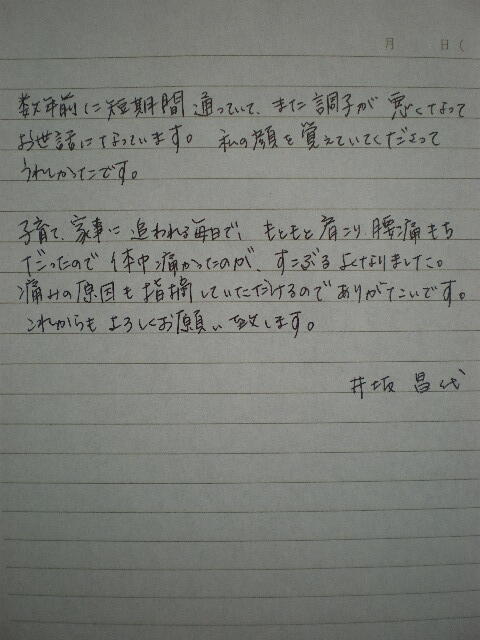 月 日(
数年前に短期間通っていて、また調子が悪くなって
お世話になっています。私の顔を覚えていてくださって
うれしかったです。
子育て、家事に追われる毎日で、もともと肩こり、腰痛もち
だったので体中痛かったのが、すこぶるよくなりました。
痛みの原因も指摘していただけるのでありがたいです。
これからもよろしくお願い致します。
井坂 昌代